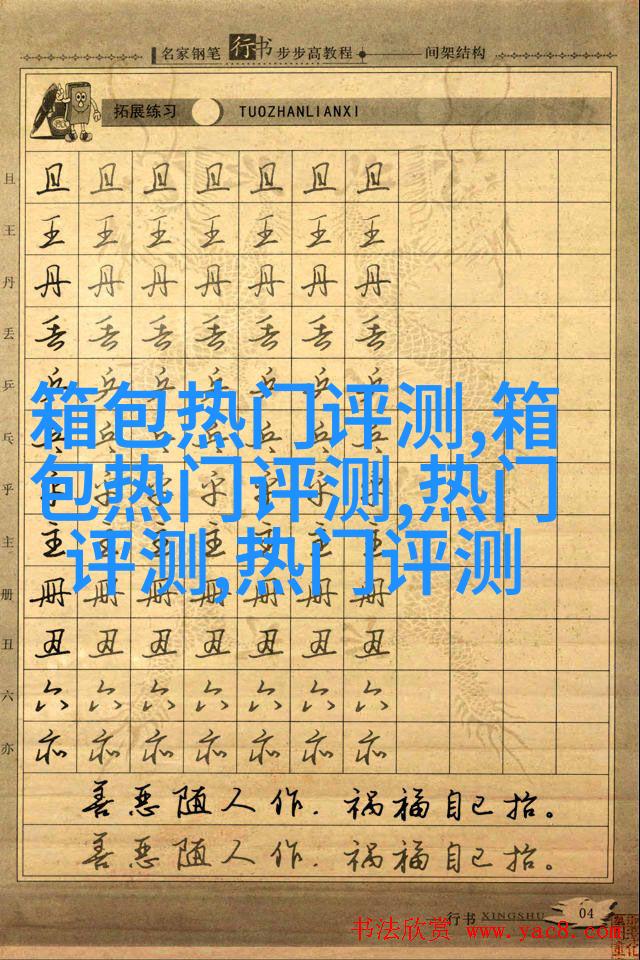 名家钢笔行书步步高教程 间架结构
拓展练习 TUOZHANLIANXI
且 且 且 且 且 且 且 且
王 王 王 王 王 王 王 王
丹 丹 丹 丹 丹 丹 丹 丹
丢 丢 丢 丢 丢 丢 丢 丢
乒 乒 乒 乒 乒 乒 乒 乒
箱包热门评测,箱
乓
包热门评测,热门
乎
主 主 主 主 主 主 主 主
评测,热门评测
册 册 册 册 册 册 册 册
丑 丑 丑 丑 丑 丑 丑 丑
六 六 六 六 六 六 六 六
亦 亦 亦 亦 亦 亦 亦 亦
善恶随人作.祸福自己招。
善恶随人作.祸福自己招。
行书 XINGSHU 04
书法欣赏 www.yac8.com